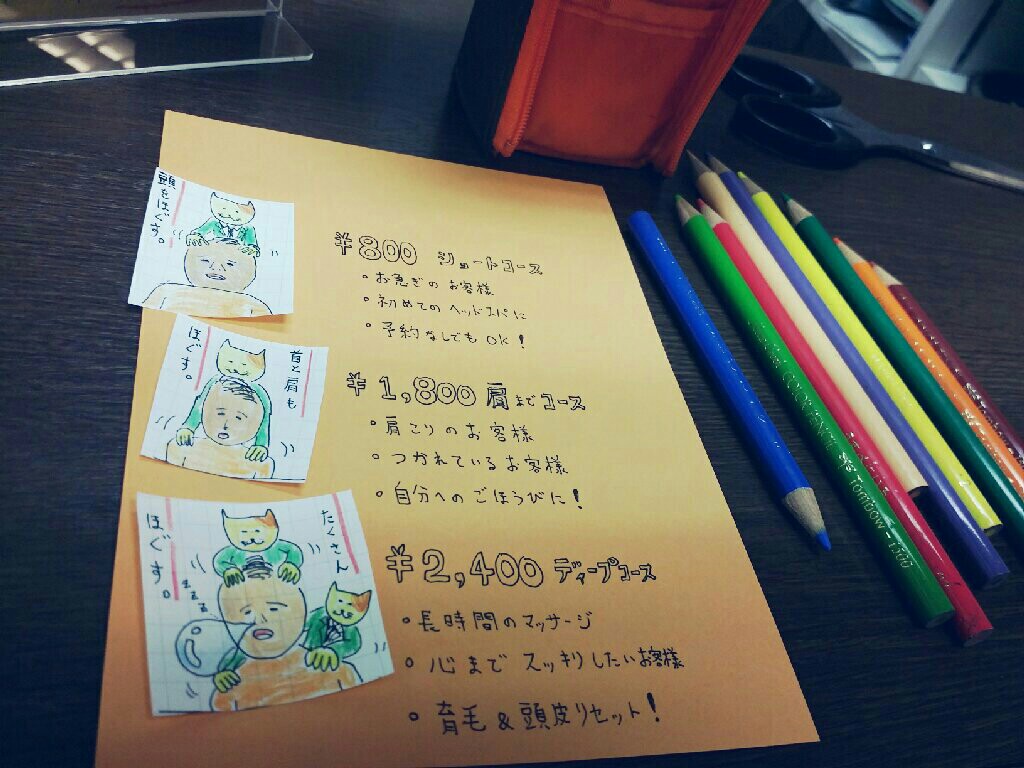 頭をほぐす。
¥800 ショートコース
・お急ぎのお客様
・初めてのヘッドスパに
・予約なしでもOK!
首と肩も
ほぐす。
¥1,800 肩までコース
・肩こりのお客様
・つかれているお客様
・自分へのごほうびに!
たくさん
ほぐす。
¥2,400 ディープコース
・長時間のマッサージ
・心までスッキリしたいお客様
・育毛&頭皮リセット!
Tombow-1500